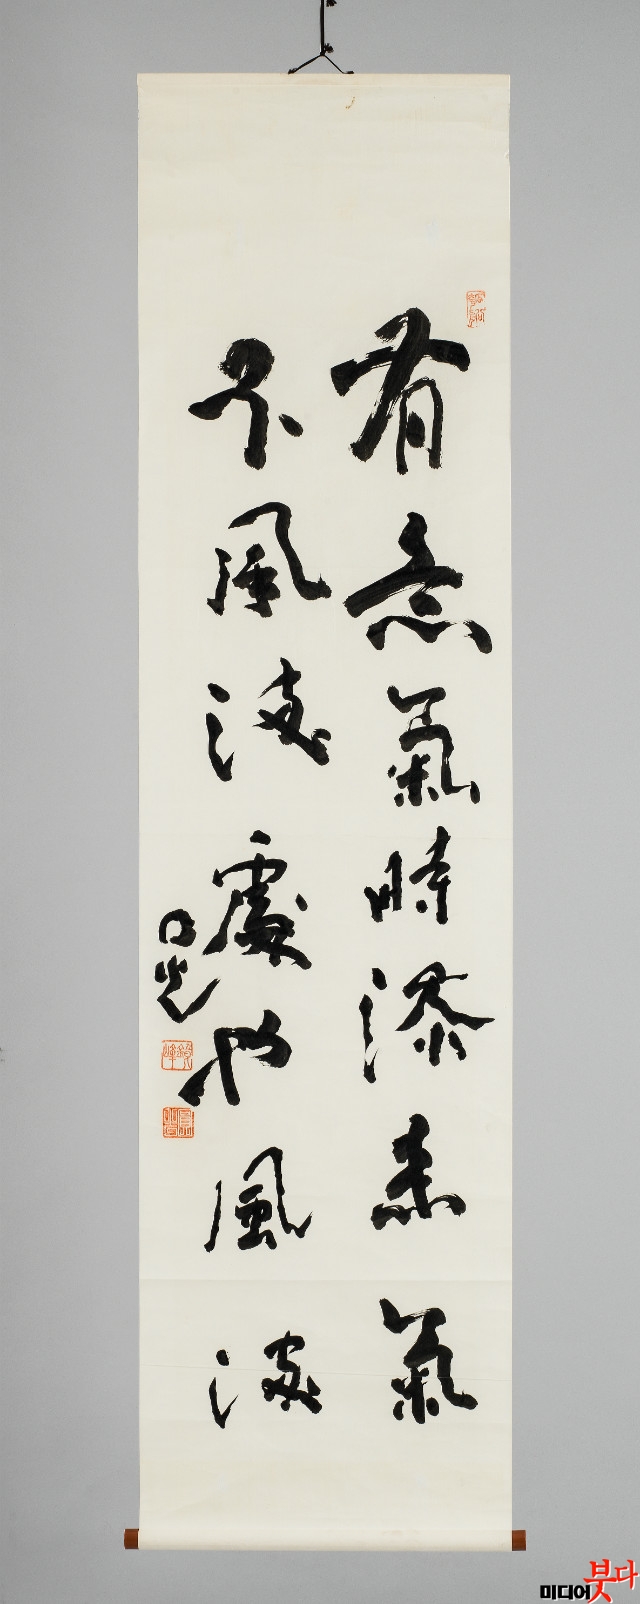 有意氣時添意氣
不風流處也風流
圓光
미디어붓다